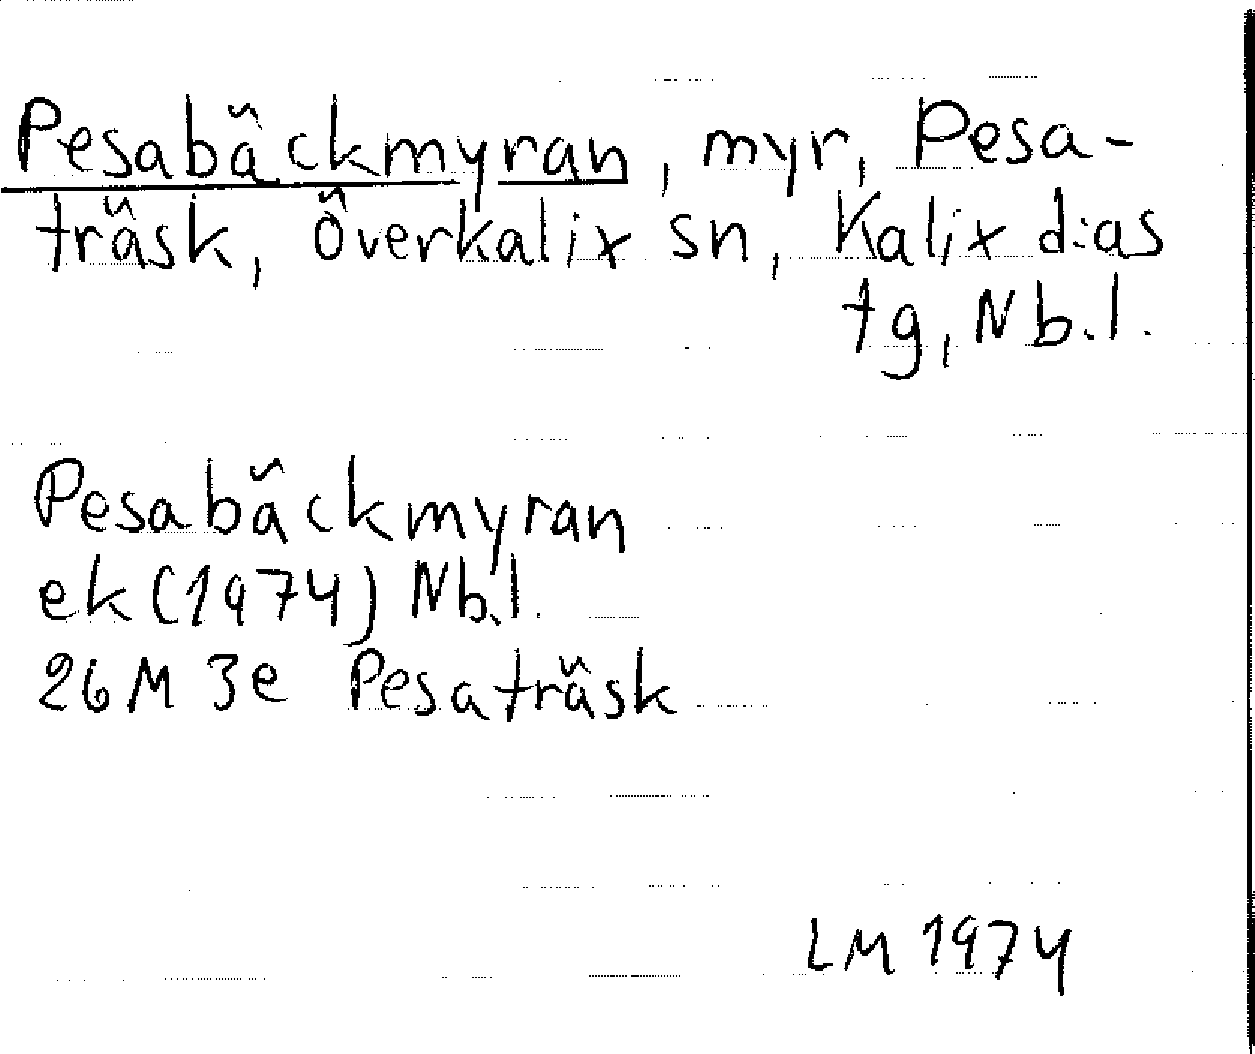 Pesabäckmyran, myr, Pesa-
träsk, Överkalix sn, Kalix d:as
tg, Nb.l.
Pesabäckmyran
ek (1974) Nb.l.
26 M 3e Pesaträsk
LM 1974